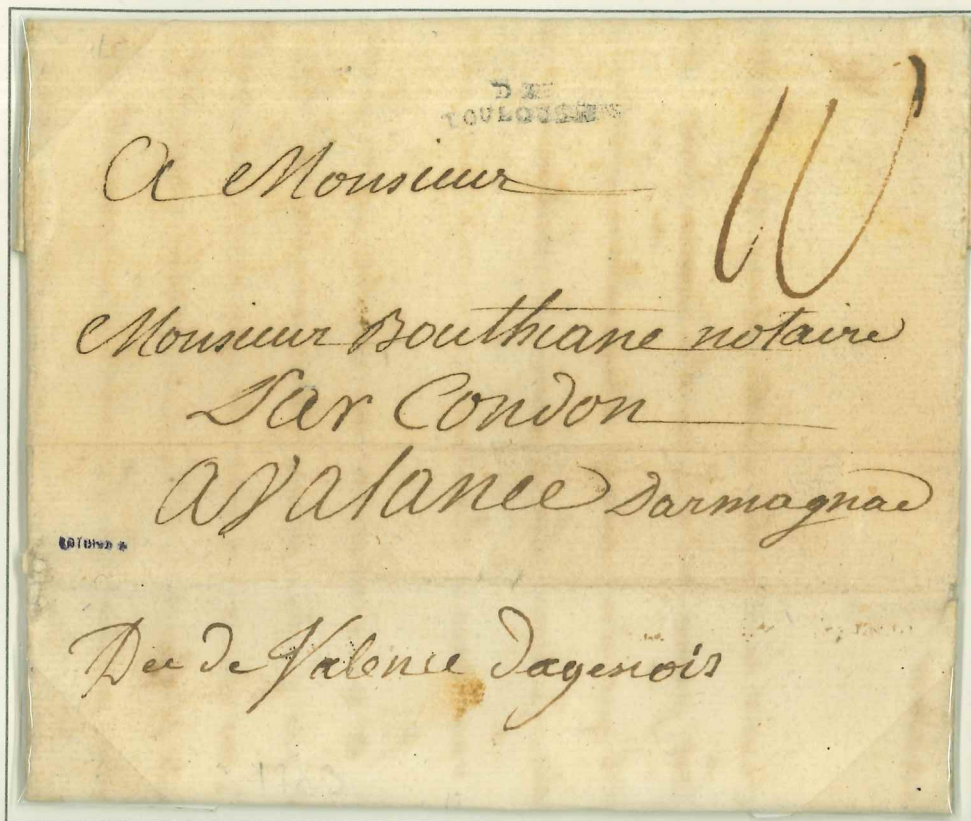 DE
TOULOUSE
10
A Monsieur
Monsieur Bouthiane notaire
Par Condon
A Valance Darmagnac
Dee de Valence dagenois